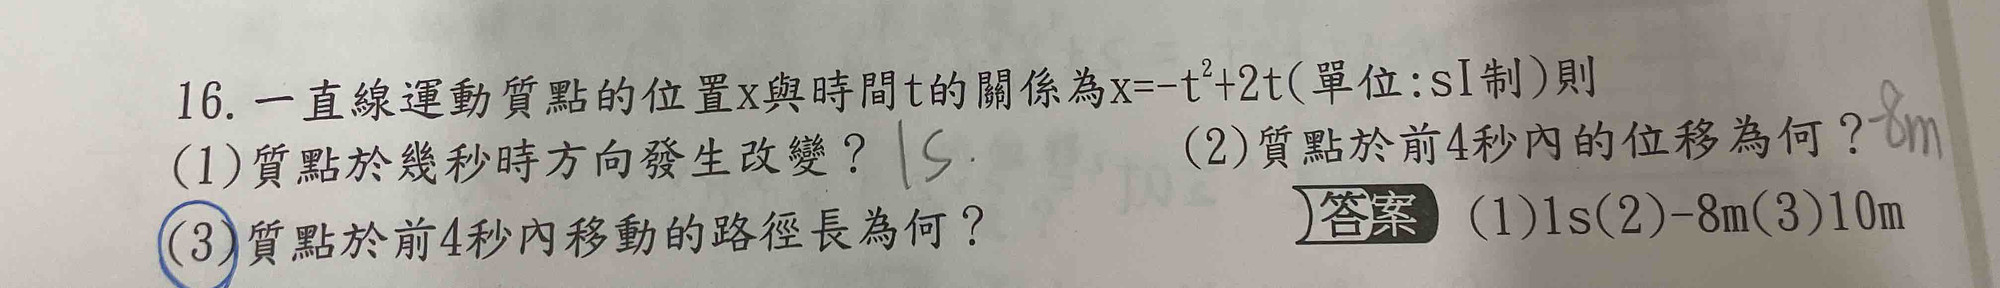 16.一直線運動質點的位置x與時間t的關係為x=-t²+2t(單位:sI制)則
(1)質點於幾秒時方向發生改變？ 1s. (2)質點於前4秒內的位移為何？-8m
(3)質點於前4秒內移動的路徑長為何？ 答案 (1)1s(2)-8m(3)10m